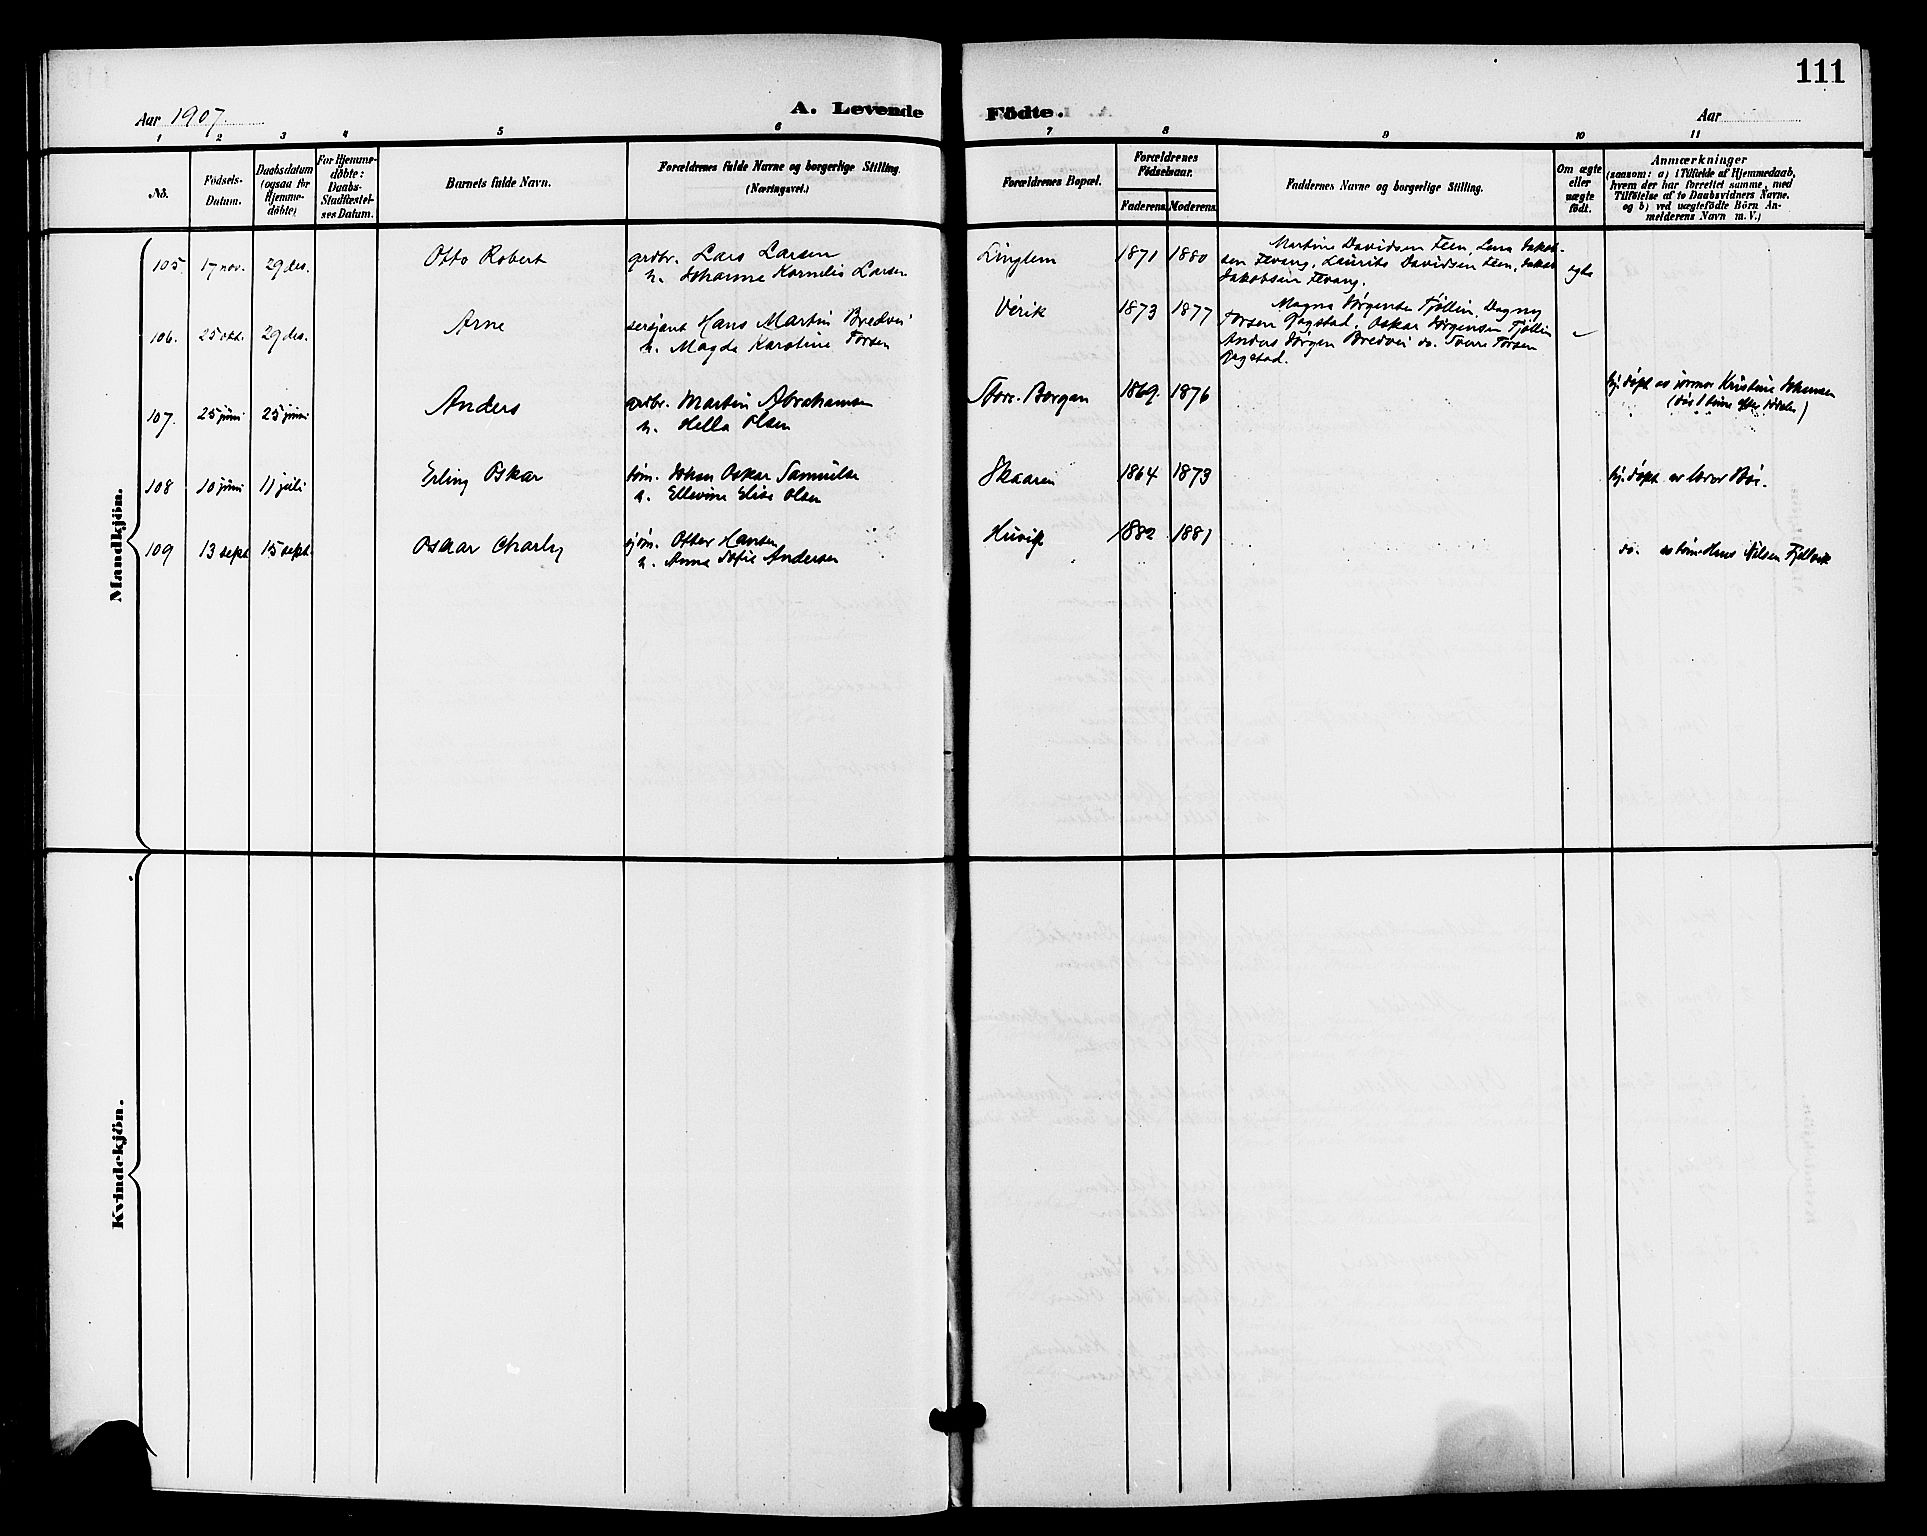 111
Aar 1907.
A. Levende Födte.
Aar
1 2 3 4 5 6 7 8 9 10 11
No.
Födsels-Datum.
Daabsdatum (ogsaa for Hjemme-döbte)
For Hjemme-döbte: Daabs-Stadfæstel-ses Datum.
Barnets fulde Navn.
Forældrenes fulde Navne og borgerlige Stilling. (Næringsvei.)
Forældrenes Bopæl.
Forældrenes Födselsaar.
Faderens. Moderens.
Faddernes Navne og borgerlige Stilling.
Om ægte eller uægte födt.
Anmærkninger
(saasom: a) i Tilfælde af Hjemmedaab,
hvem der har forrettet samme, med
Tilföielse af to Daabsvidners Navne.
og b) ved uægtefödte Börn An-
melderens Navn m. V.)
Mandkjön.
105. 17 nov. 29 des. Otto Robert grdbr. Lars Larsen
h. Johanne Kornelia Larsen
1871 1880 Martine Davidsen Feen, Lena Jakob-
sen Fevang, Laurits Davidsen Feen,
Jakobsen Fevang.
egte
106. 25 okt. 29 des. Arne sersjant Hans Martin Bredvei
h. Magda Karoline Torsen
Verik 1873 1877 Magna Jørgensen Tjøllin, Dagny
Torsen, Oskar Jørgensen Tjøllin
Anders Jørgen Bredvei
107. 25 juni 25 juni Anders grdbr. Martin Abrahamsen
h. Hella Olsen
Store-Bergan 1869. 1876
hj. døpt av jormor Kristine Johansen
108 10 juni 11 juli Erling Oskar tøm. Johan Oskar
h. Ellevine Elise Olsen
Skaaren 1864 1873
hj. døpt av lærer Bøe.
109 13 sept 15 sept. Oskar Charly sjøm. Otter Hansen
h. Anna Sofie Andersen
Huvik 1882 1881
do. av tøm. Hans Nilsen
Kvindekjön.